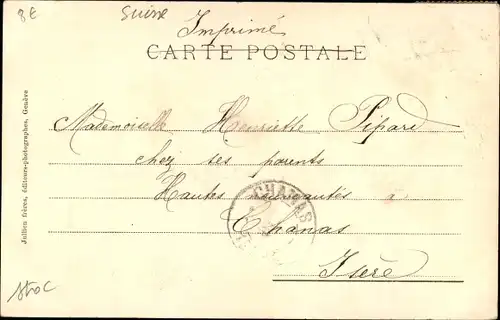 8€
Suisse
Imprimé
CARTE POSTALE
Mademoiselle Henriette Pipard
chez ses parents
Hautes nouveautés à
Chanas
Isère
CHANAS
Jullien frères, éditeurs-photographes, Genève